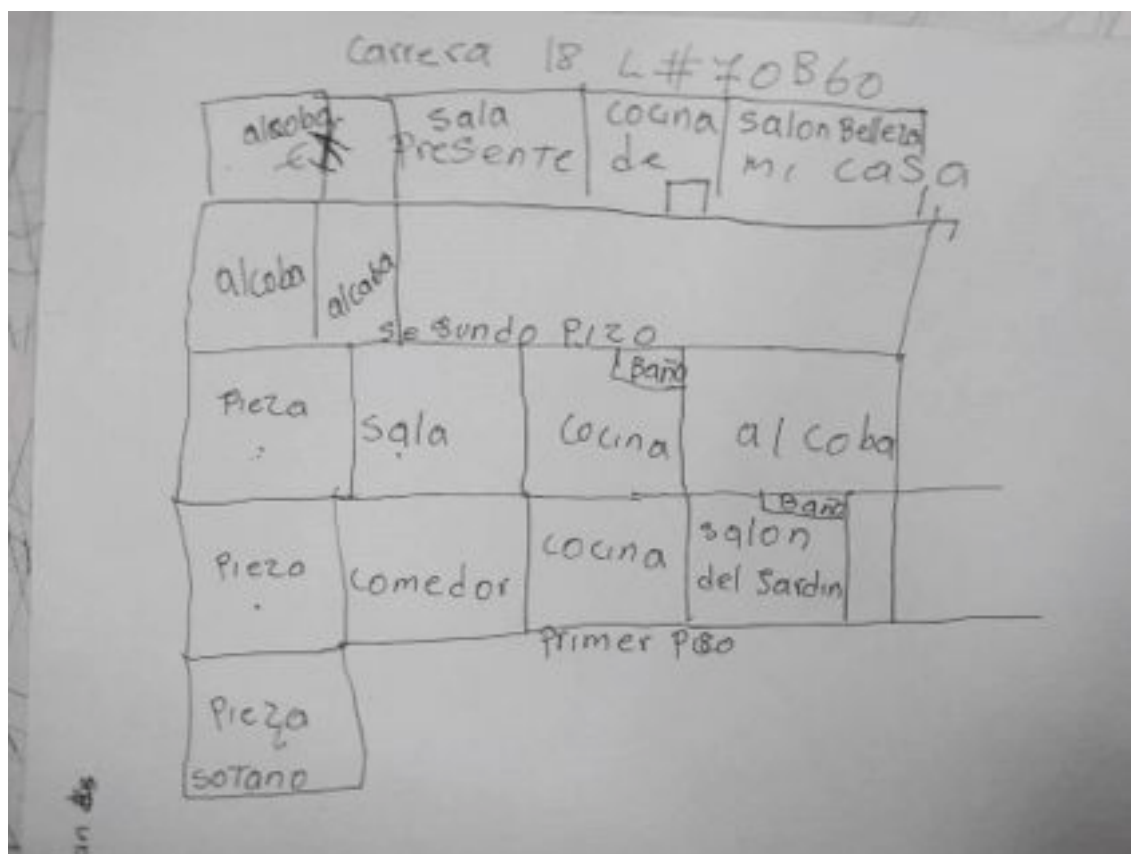 Carrera 18 L#70B60
alcoba sala cocina salon Belleza
En Presente de mi casa
alcoba alcoba
segundo Pizo
Baño
Pieza sala cocina alcoba
Baño
Piezo comedor cocina salon
del Sardin
Primer Piso
Pieza
soTano